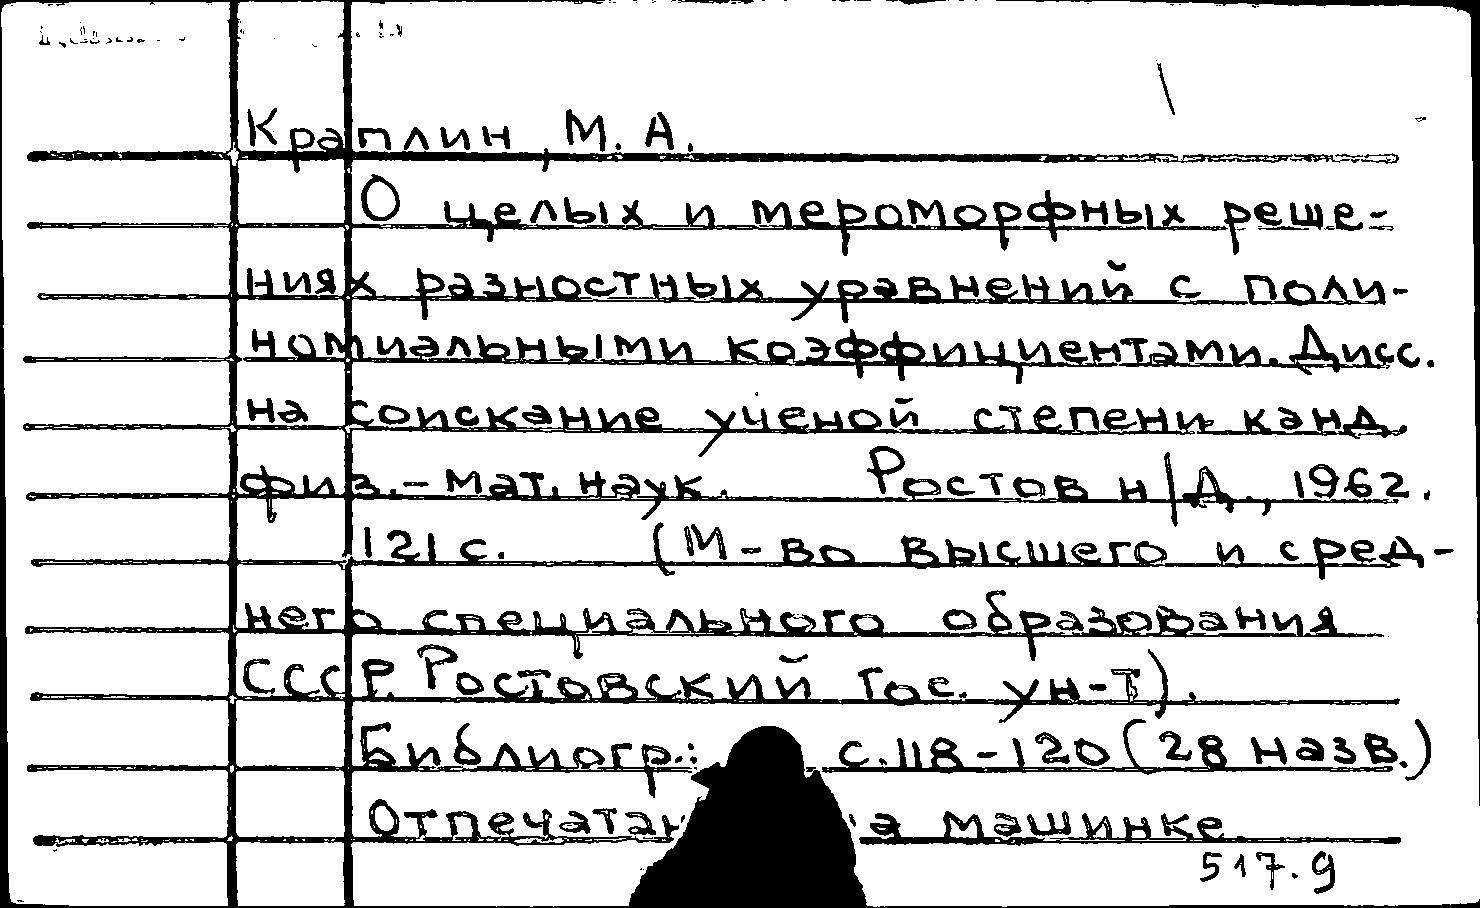 Краплин, М. А.
О целых и мероморфных реше-
ниях разностных уравнений с поли-
номиальными коэффициентами. Дисс.
на соискание ученой степени канд.
физ.-мат. наук. Ростов н/Д., 1962.
121 с. (М-во высшего и сред-
него специального образования
СССР. Ростовский гос. ун-т).
Библиогр.: с. 118-120 (28 назв.)
машинке.
517.9